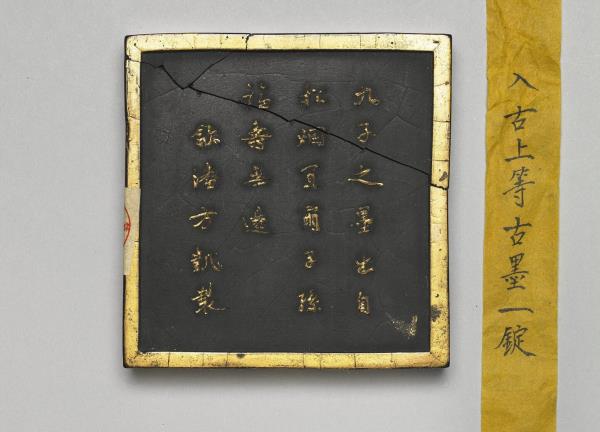 入古上等古墨一錠
九子之墨出自
松烟宜爾子孫
福壽無邊
歙浦方凱製